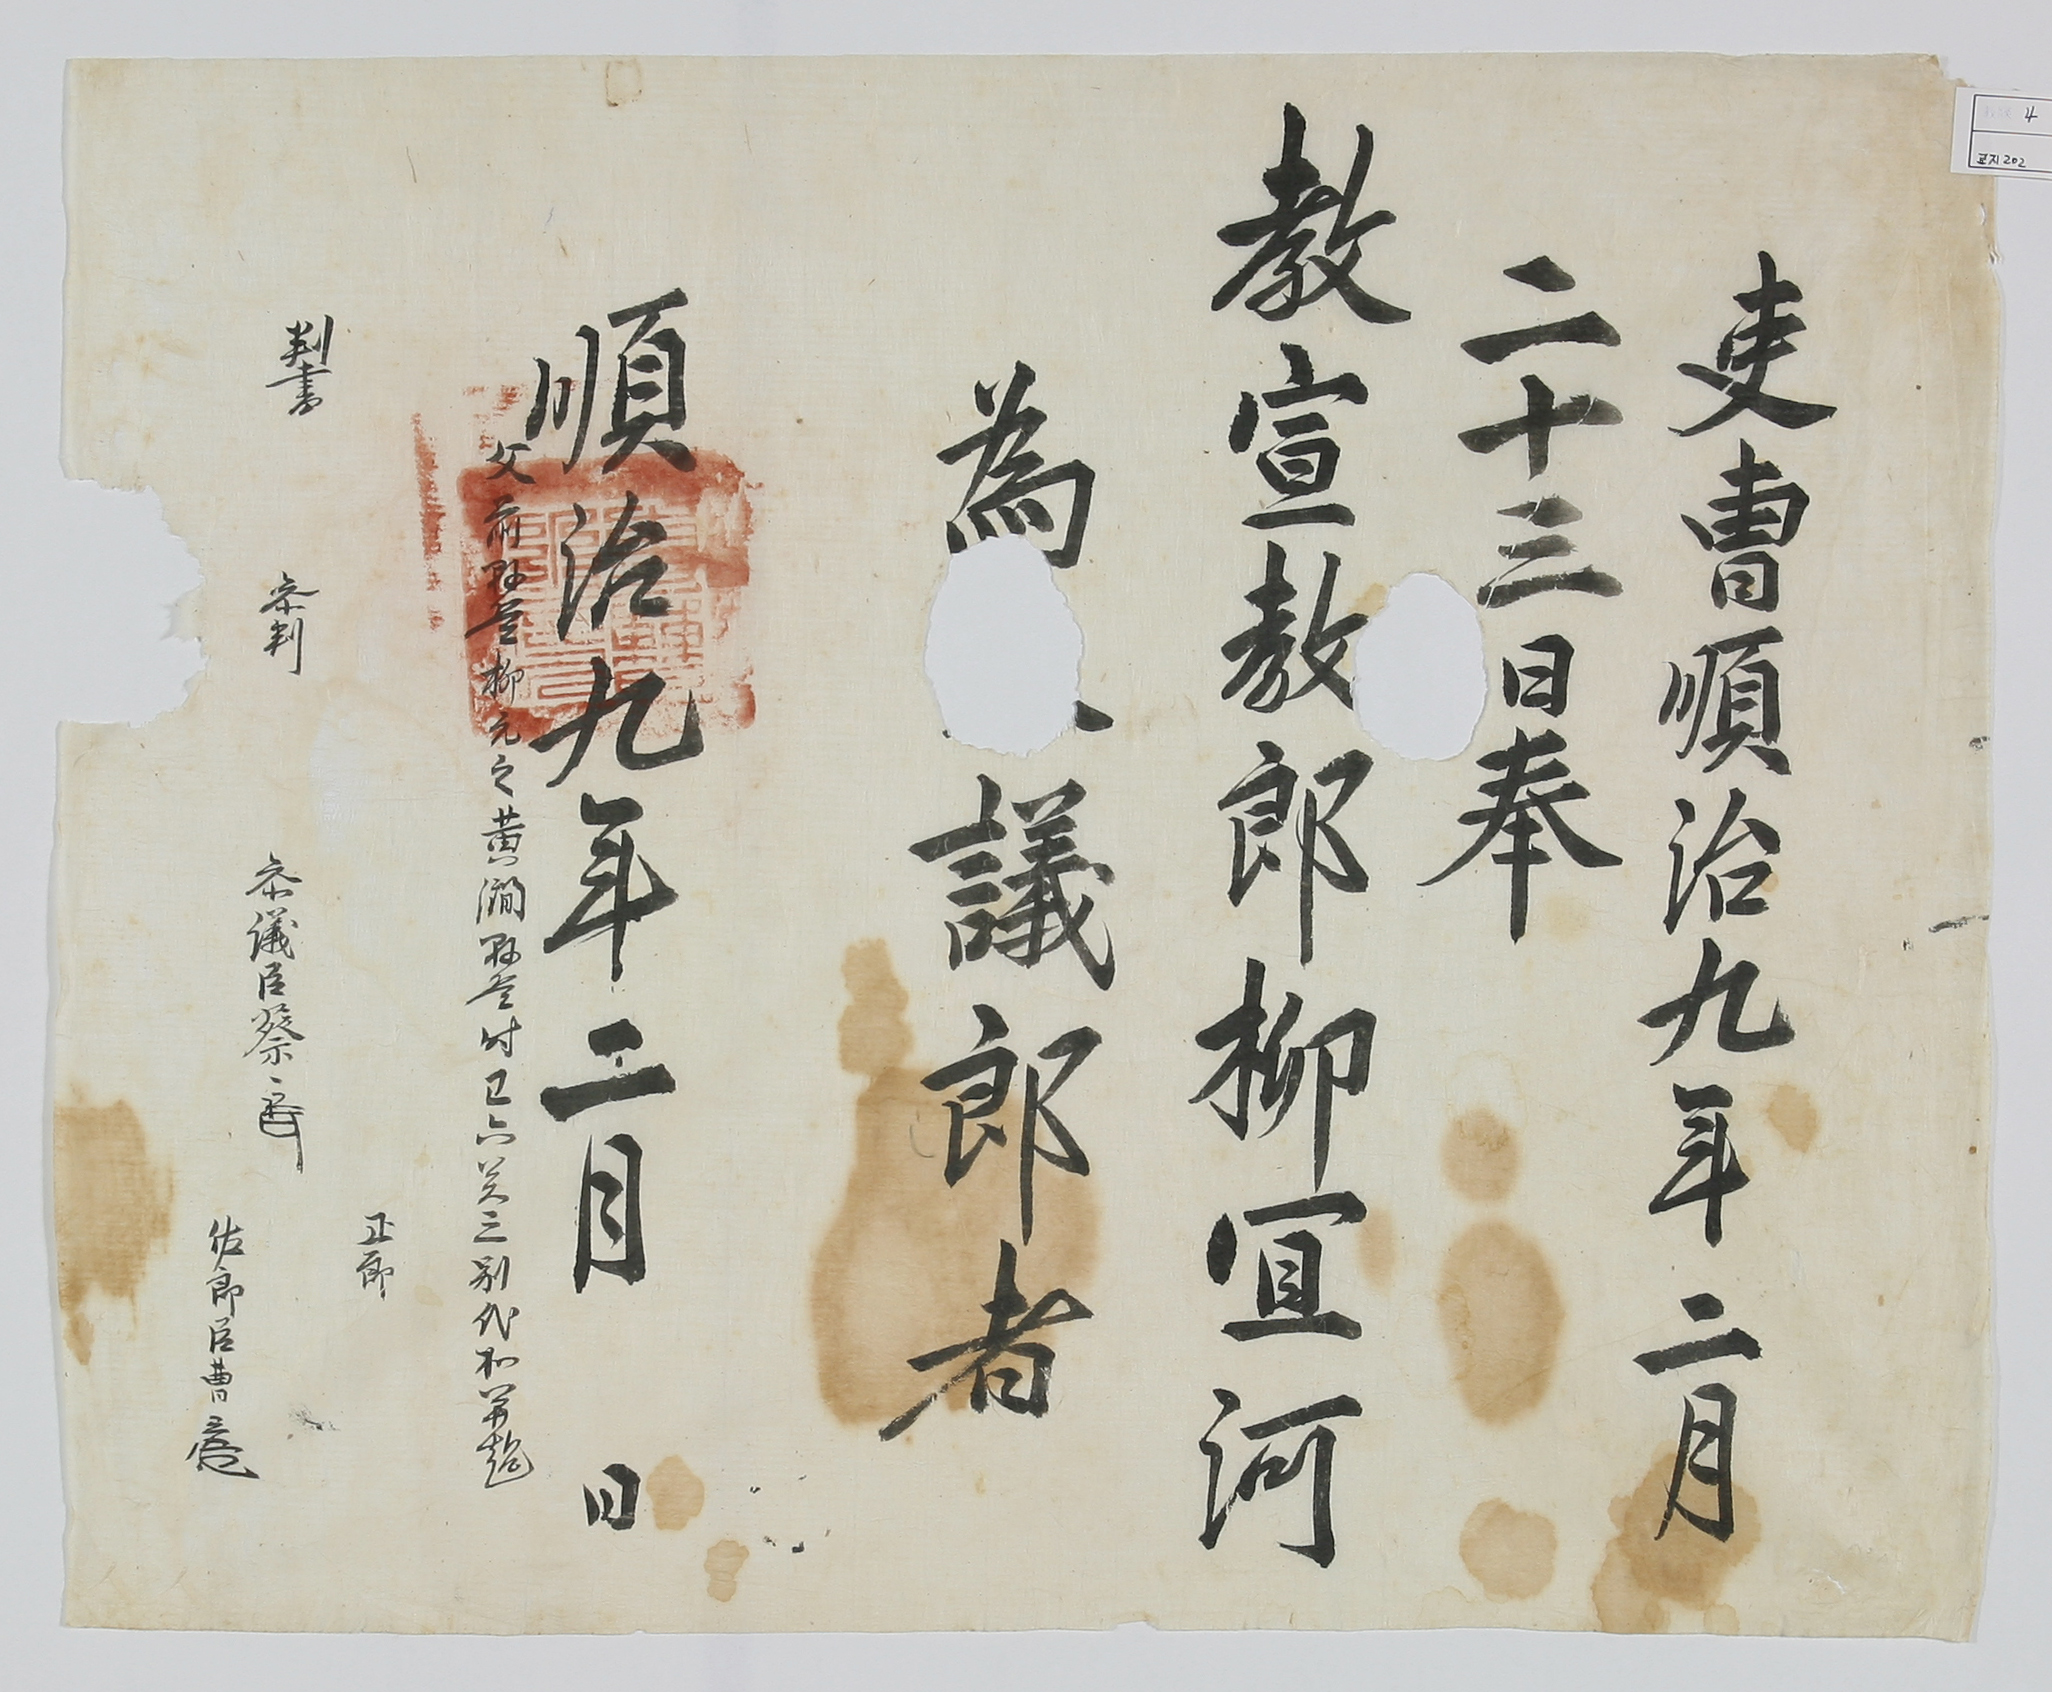 吏曹順治九年二月
二十三日奉
教宣教郎柳宜河
為 議郎者
順治九年二月 日
父前縣監柳元之黃澗縣監時己六 三別代加並超
判書
參判
參議臣蔡
正郎
佐郎臣曹
4
교지202